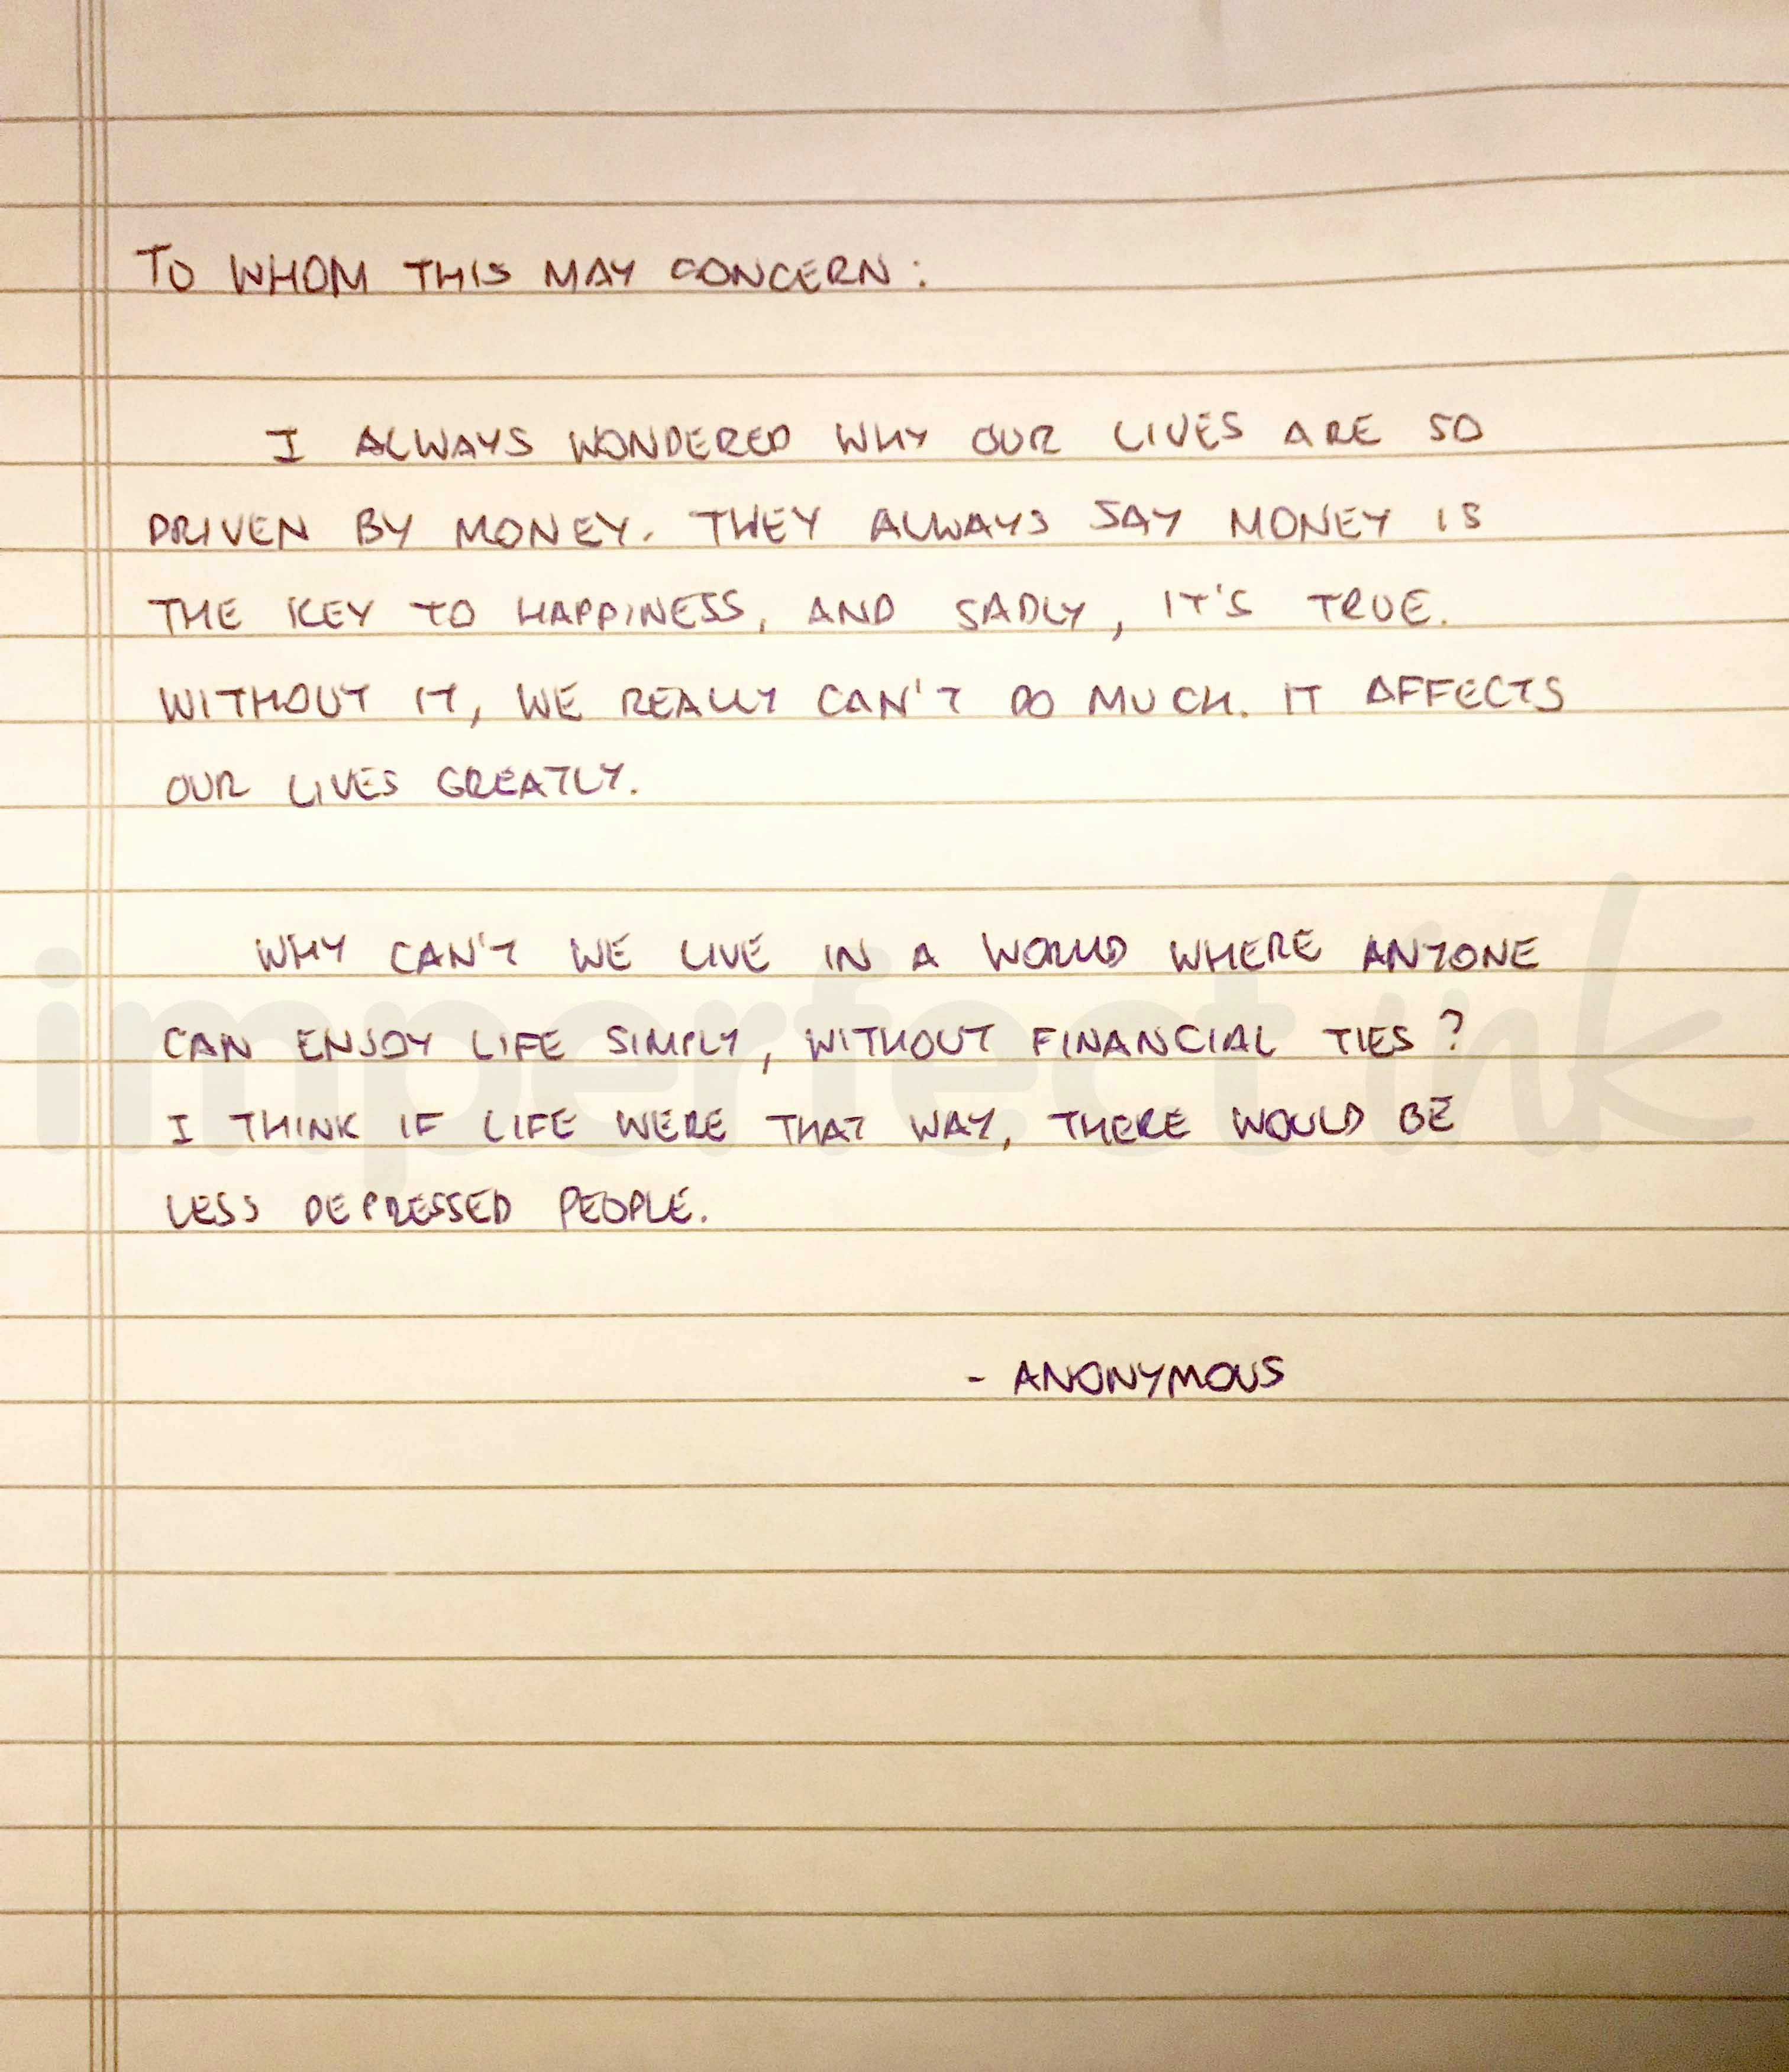 TO WHOM THIS MAY CONCERN:
I ALWAYS WONDERED WHY OUR LIVES ARE SO
DRIVEN BY MONEY. THEY ALWAYS SAY MONEY IS
THE KEY TO HAPPINESS, AND SADLY, IT'S TRUE.
WITHOUT IT, WE REALLY CAN'T DO MUCH. IT AFFECTS
OUR LIVES GREATLY.
WHY CAN'T WE LIVE IN A WORLD WHERE ANYONE
CAN ENJOY LIFE SIMPLY, WITHOUT FINANCIAL TIES?
imperfect ink
I THINK IF LIFE WERE THAT WAY, THERE WOULD BE
LESS DEPRESSED PEOPLE.
- ANONYMOUS